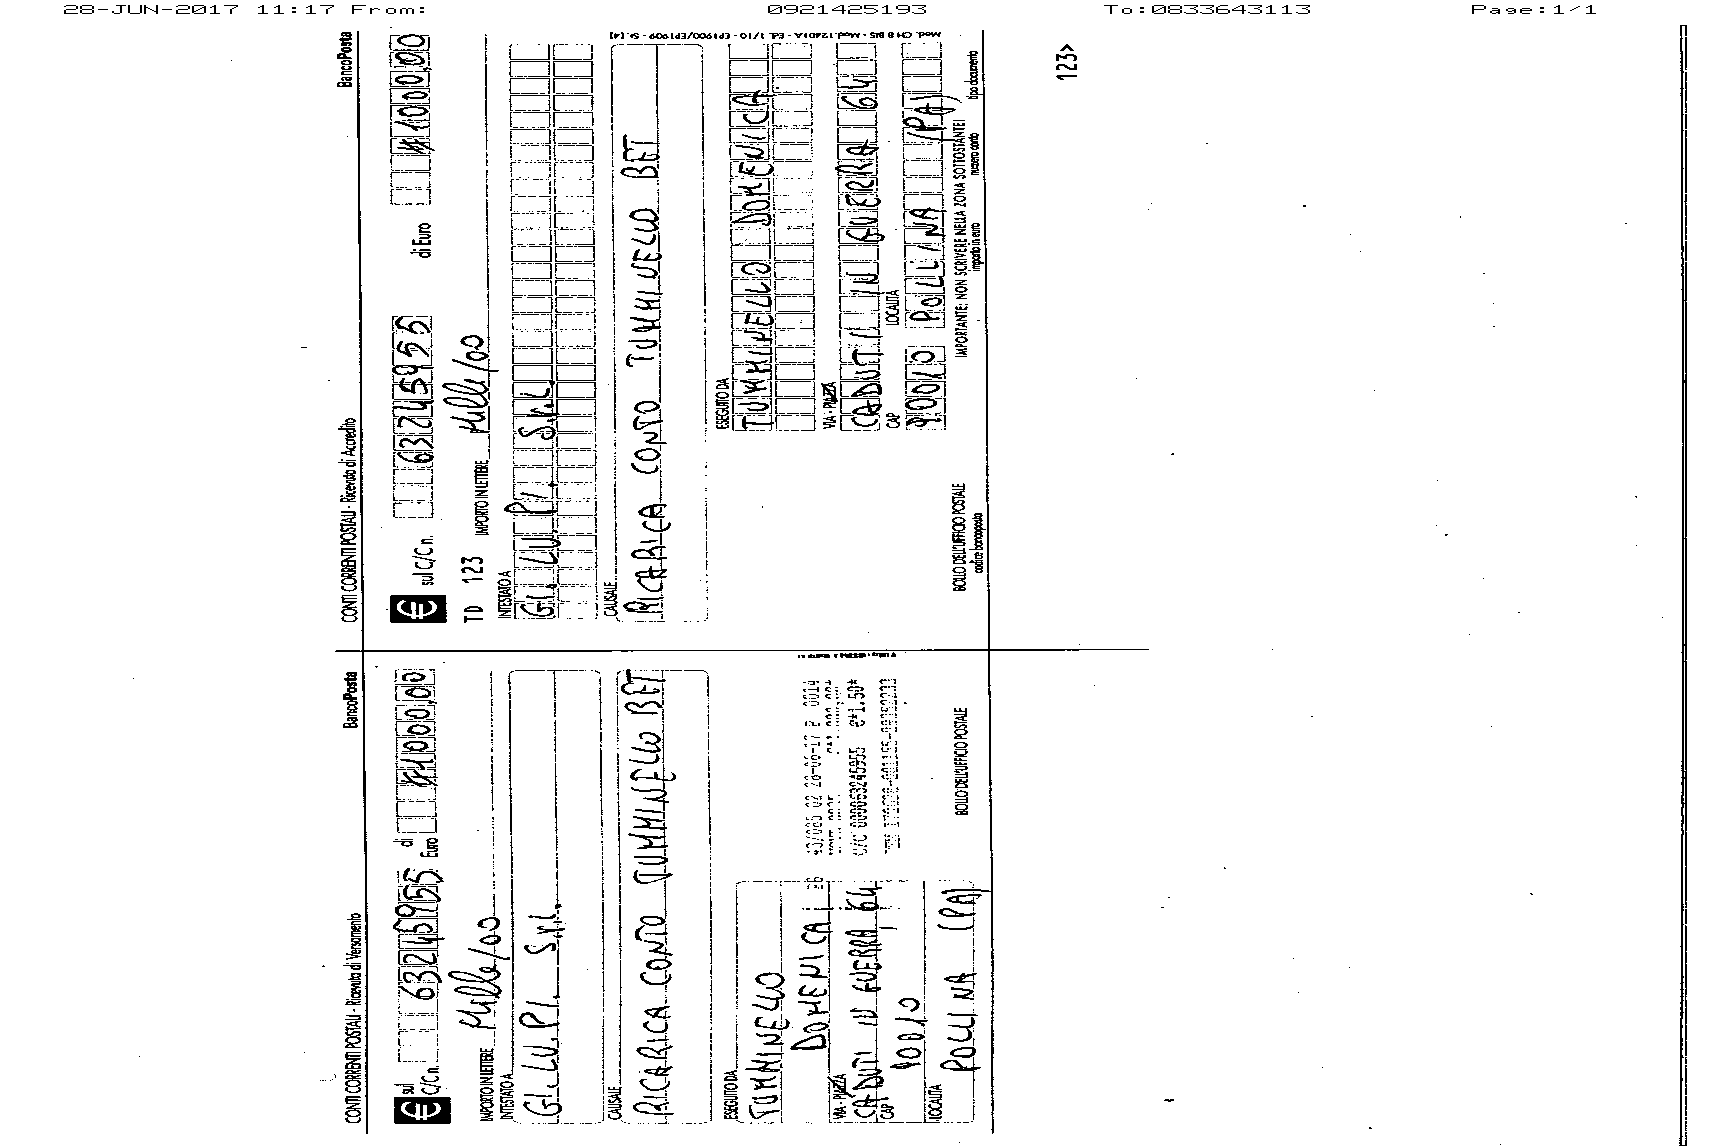 28-JUN-2017 11:17 From: 0921425193 To:0833643113 Page:1/1
CONTI CORRENTI POSTALI - Ricevuta di Versamento BancoPosta
€ sul C/C n. 63245955 di Euro #1000,00
IMPORTO IN LETTERE Mille/00
INTESTATO A
GI. LU. P.I. S.r.l.
CAUSALE
RICARICA CONTO TUMMINELLO BET
ESEGUITO DA
TUMMINELLO
DOMENICA
VIA - PIAZZA
CADUTI IN GUERRA, 64
CAP
90010
LOCALITÀ
POLLINA (PA)
28-06-17 P 0014
C/C 000063245955 €*1.50*
BOLLO DELL'UFFICIO POSTALE
CONTI CORRENTI POSTALI - Ricevuta di Accredito BancoPosta
€ sul C/C n. 63245955 di Euro #1000,00
TD 123 IMPORTO IN LETTERE Mille/00
INTESTATO A
GI. LU. PI. S.r.l.
CAUSALE
RICARICA CONTO TUMMINELLO BET
ESEGUITO DA
TUMMINELLO DOMENICA
VIA - PIAZZA
CADUTI IN GUERRA 64
CAP LOCALITÀ
90010 POLLINA (PA)
BOLLO DELL'UFFICIO POSTALE
codice bancoposta
IMPORTANTE: NON SCRIVERE NELLA ZONA SOTTOSTANTE!
importo in euro numero conto tipo documento
Mod. CH 8 BIS - Mod. 12401A - Ed. 1/10 - EP1900/EP1909 - St. [4]
123>